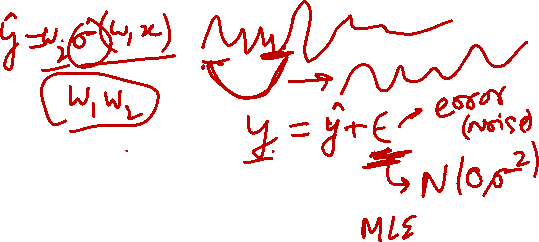 ŷ = w₂ σ(w₁x)
w₁ w₂
y = ŷ + ε → error
(noise)
→ N(0, σ²)
MLE